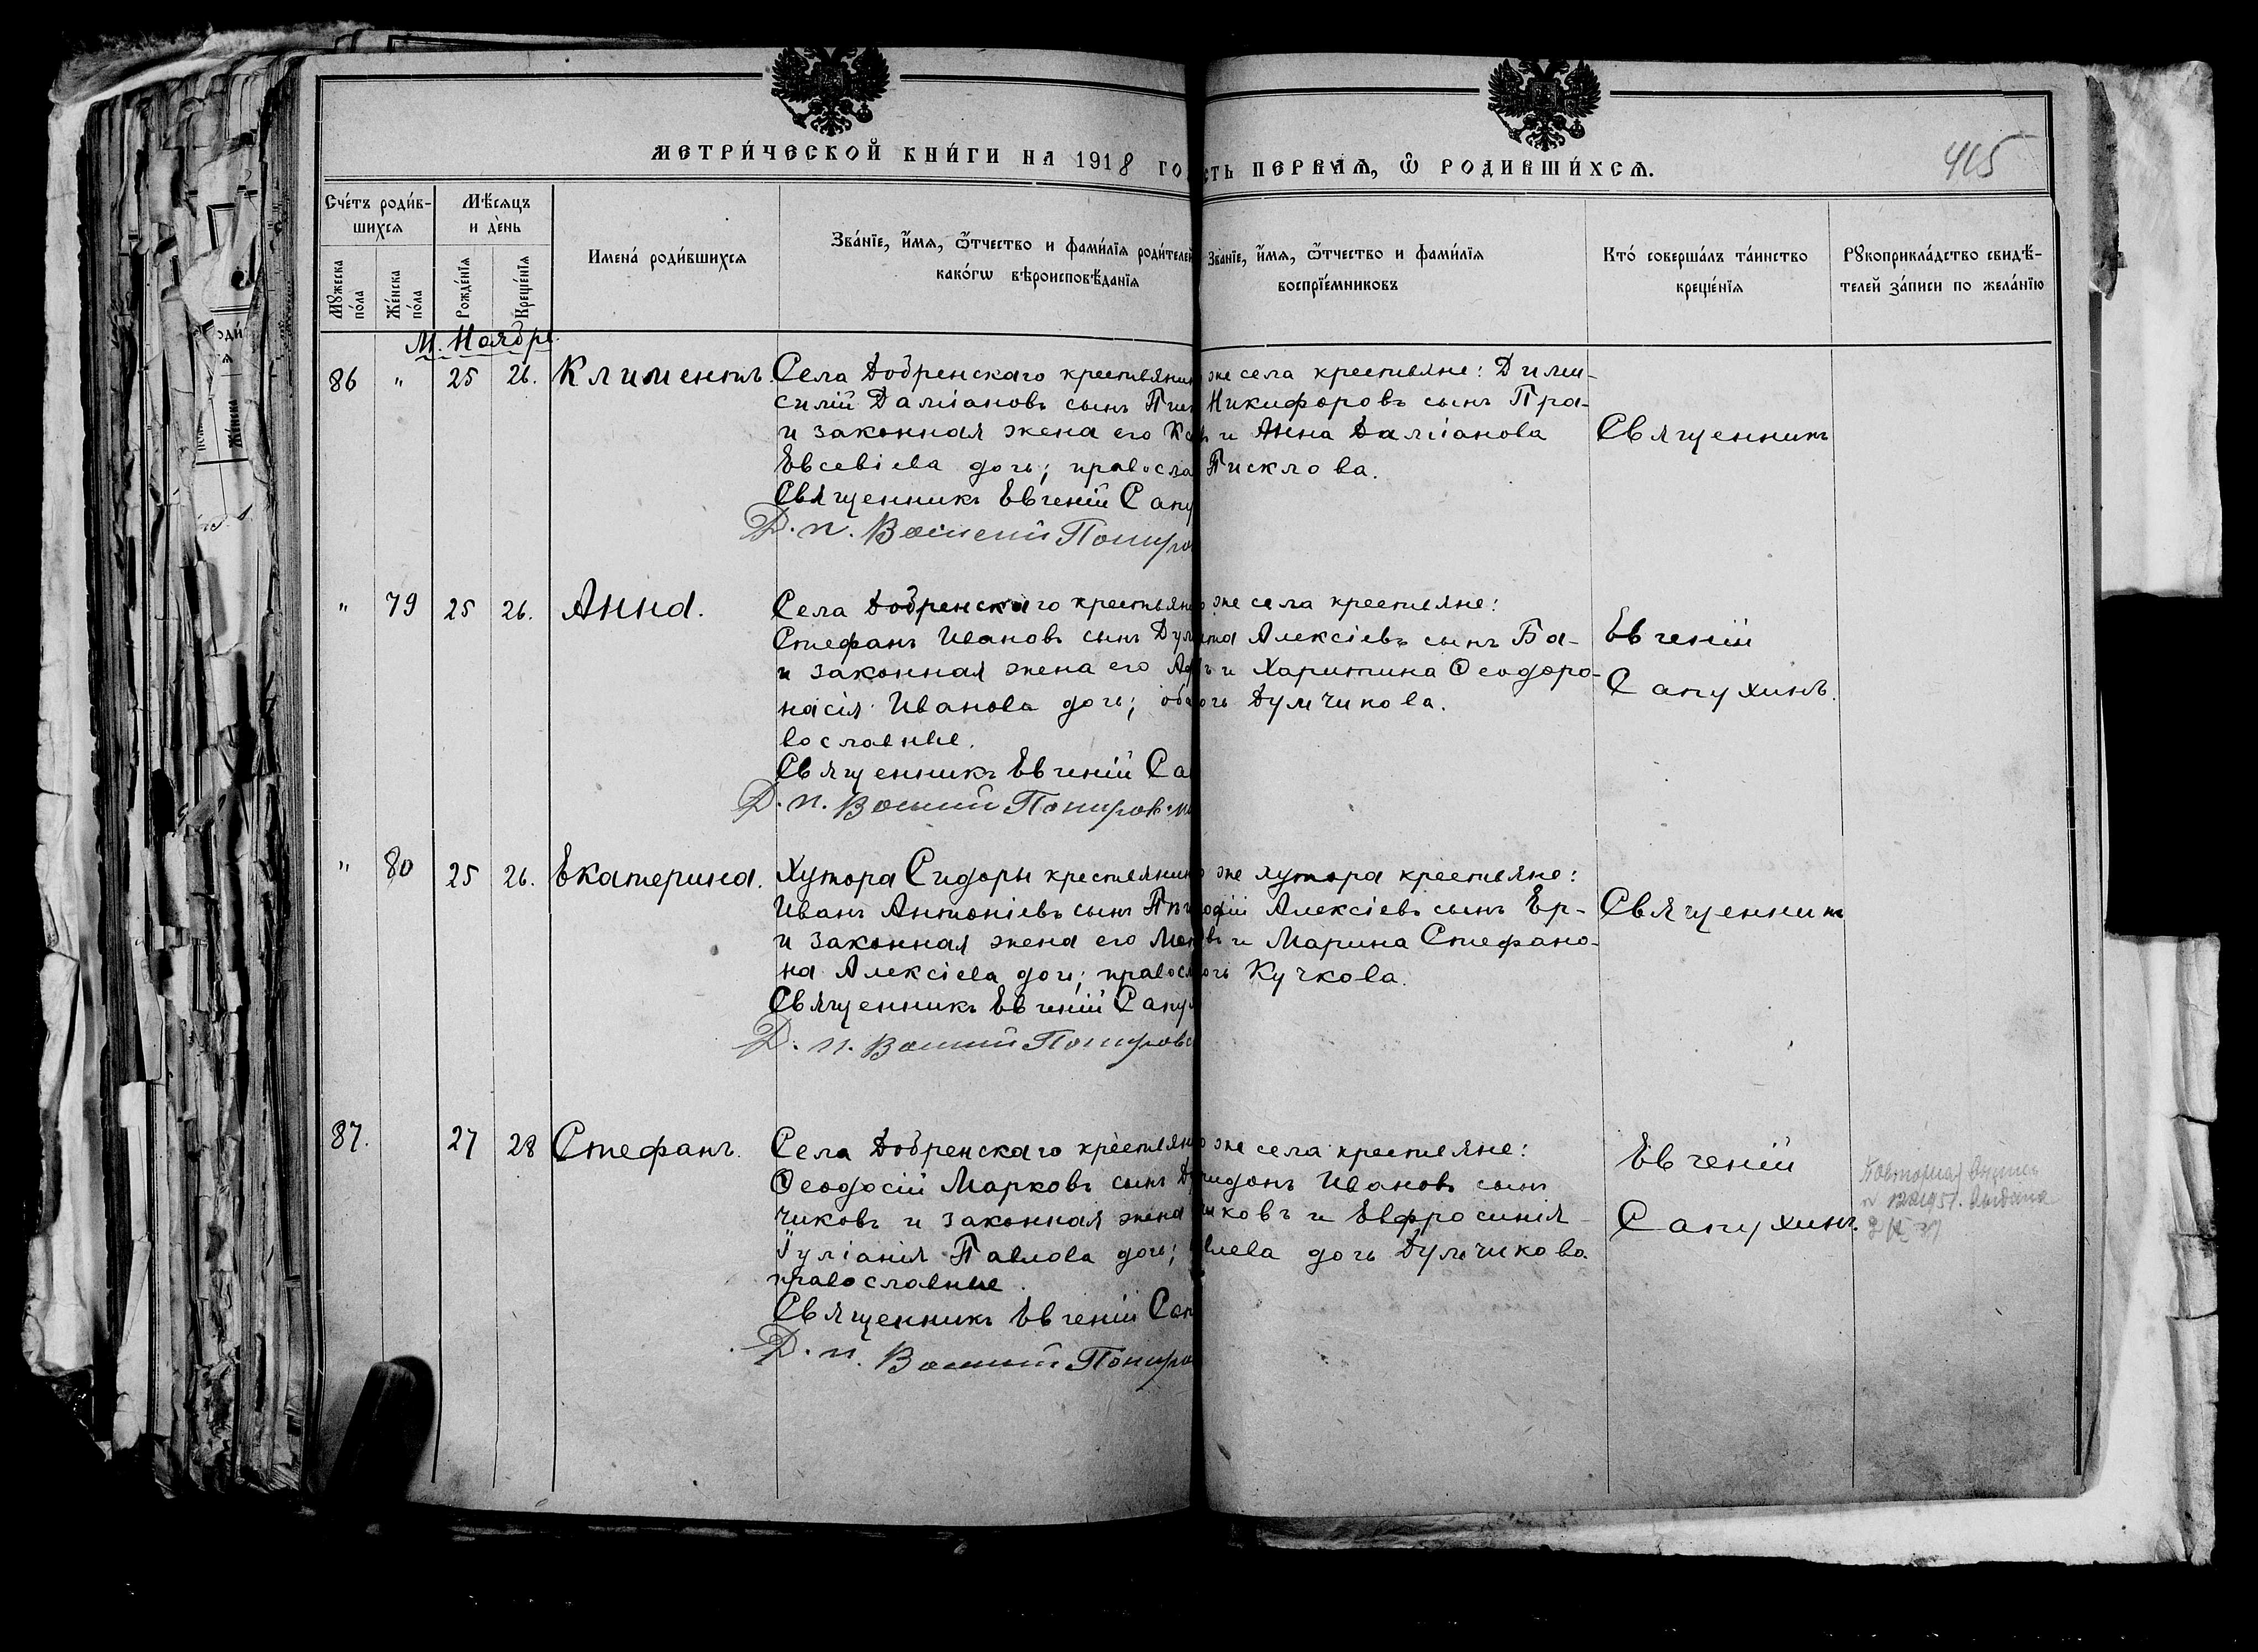 МЕТРИ́ЧЕСКОЙ КНИ́ГИ НА 1918
СТЬ ПЕРВАЯ, Ѿ РОДИВШИ́ХСЯ.
415
Сче́тъ роди́в-
шихся
Мꙋ́жеска
по́ла
Же́нска
по́ла
Мѣ́сяцъ
и де́нь
Рожде́нїя
Креще́нїя
Имена́ роди́вшихся
Зва́нїе, и́мя, ѻ҆́тчество и фами́лїя роди́телей
како́гѡ вѣроисповѣ́данїя
Зва́нїе, и́мя, ѻ҆́тчество и фами́лїя
воспрїе́мниковъ
Кто́ соверша́лъ та́инство
креще́нїя
Рꙋкоприкла́дство свидѣ́-
телей за́писи по жела́нїю
М. Ноябрь
86 " 25 26. Климентъ.
Села Добренскаго крестьянин
силій Даміановъ сынъ
и законная жена его
Евсевіева дочь; правосла
Священникъ Евгеній Сапу
Д. п. Василій
же села крестьяне: Дими-
Никифоровъ сынъ Пра-
и Анна Даміанова
Писклова.
Священникъ
" 79 25 26. Анна.
Села Добренскаго крестьян
Стефанъ Ивановъ сынъ Дул
и законная жена его Аф
насія Иванова дочь; оба
вославные.
Священникъ Евгеній Са
Д. п. Василій
же села крестьяне:
Алексіевъ сынъ Ба-
и Харитина Ѳеодоро-
Дульчикова.
Евгеній
Сапухинъ.
" 80 25 26. Екатерина.
Хутора Сидоры крестьянин
Иванъ Антоніевъ сынъ
и законная жена его
на Алексіева дочь; правосл
Священникъ Евгеній Сапу
Д. п. Василій
же хутора крестьяне:
Алексіевъ сынъ Ер-
и Марина Стефано-
Кучкова.
Священникъ
87. 27 28 Стефанъ.
Села Добренскаго крестьян
Ѳеодосій Марковъ сынъ Ду
чиковъ и законная жена
Іуліанія Павлова дочь;
православные.
Священникъ Евгеній Сап
Д. п. Василій
же села крестьяне:
ридонъ Ивановъ сынъ
чиковъ и Евфросинія
дочь Дульчикова
Евгеній
Сапухинъ.